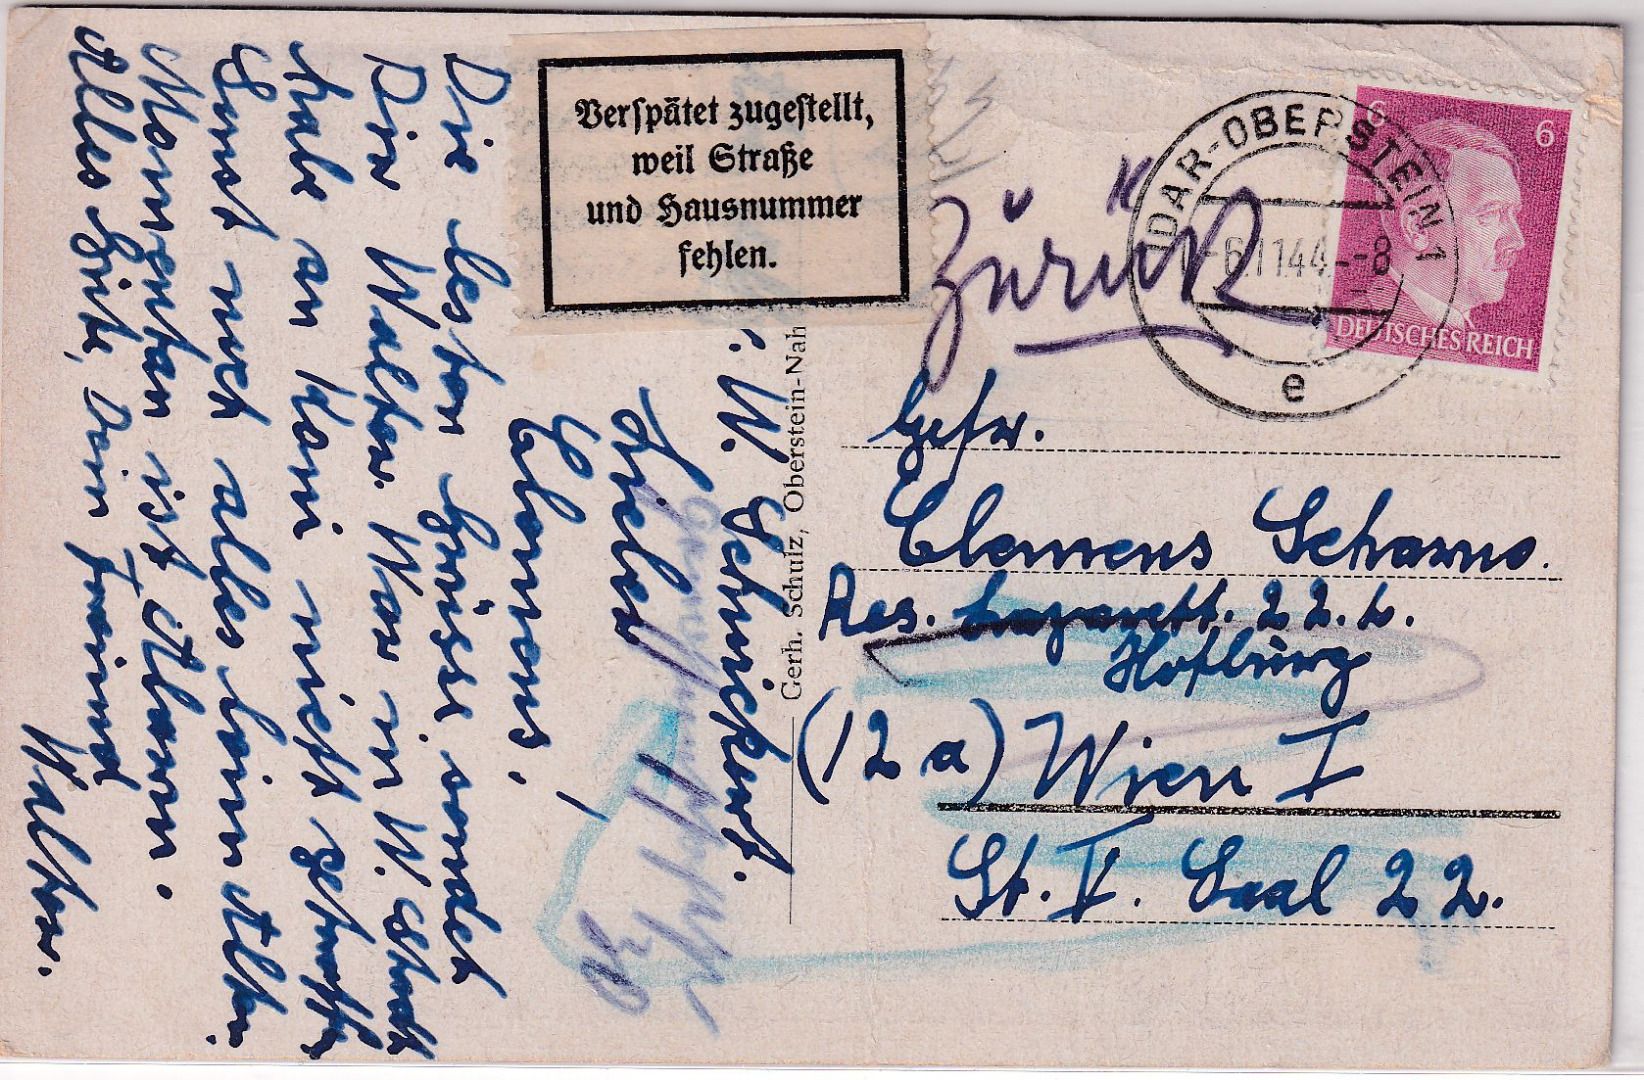 Verspätet zugestellt,
weil Straße
und Hausnummer
fehlen.
Zurück
IDAR-OBERSTEIN 1
-6.11.44.--8
e
6
6
DEUTSCHES REICH
Gefr.
Clemens Scharno.
Res. Lazarett. 22. L.
Hofburg
(12a) Wien I
St. V. Saal 22.
Gerh. Schulz, Oberstein-Nah
W. Schnickert.
Lieber
Clemens,
Die besten Grüsse sendet
Dir Walter. War in W. Stadt
habe an Kom nicht getroffen
Sonst noch alles beim Alten.
Momentan ist Alarm.
Alles Gute, Dein Freund
Walter.
30